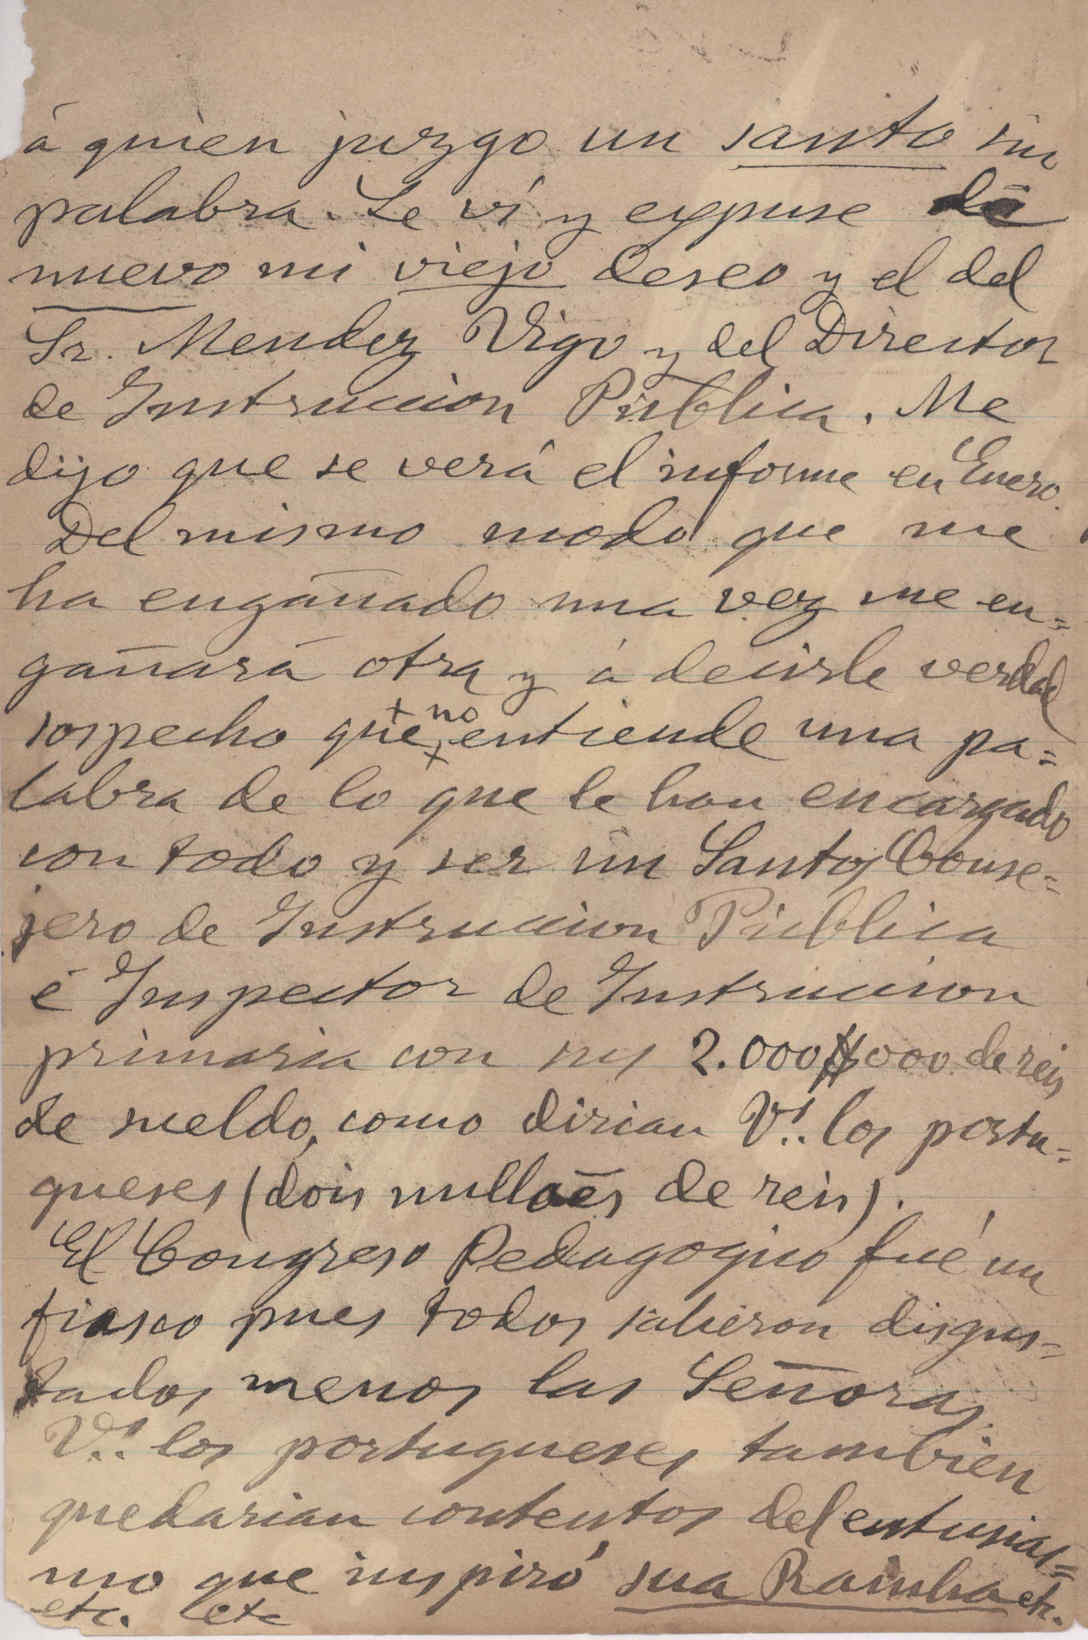 á quien juzgo un santo sin
palabra. Le ví y expuse de
nuevo mi viejo deseo y el del
Sr. Mendez Vigo y del Director
de Instruccion Pública. Me
dijo que se verá el informe en Enero.
Del mismo modo que me
ha engañado una vez me en=
gañará otra y á decirle verdad
sospecho que no entiende una pa=
labra de lo que le han encargado
con todo y ser un Santo, Conse=
jero de Instruccion Pública
é Inspector de Instruccion
primaria con sus 2.000$000 de reis
de sueldo, como dirian Vs. los portu=
gueses (dois milloẽs de reis).
El Congreso Pedagogico fué un
fiasco pues todos salieron disgus=
tados menos las Señoras.
Vs. los portugueses tambien
quedarian contentos del entusias=
mo que inspiró sua Rainha etc.
etc. etc